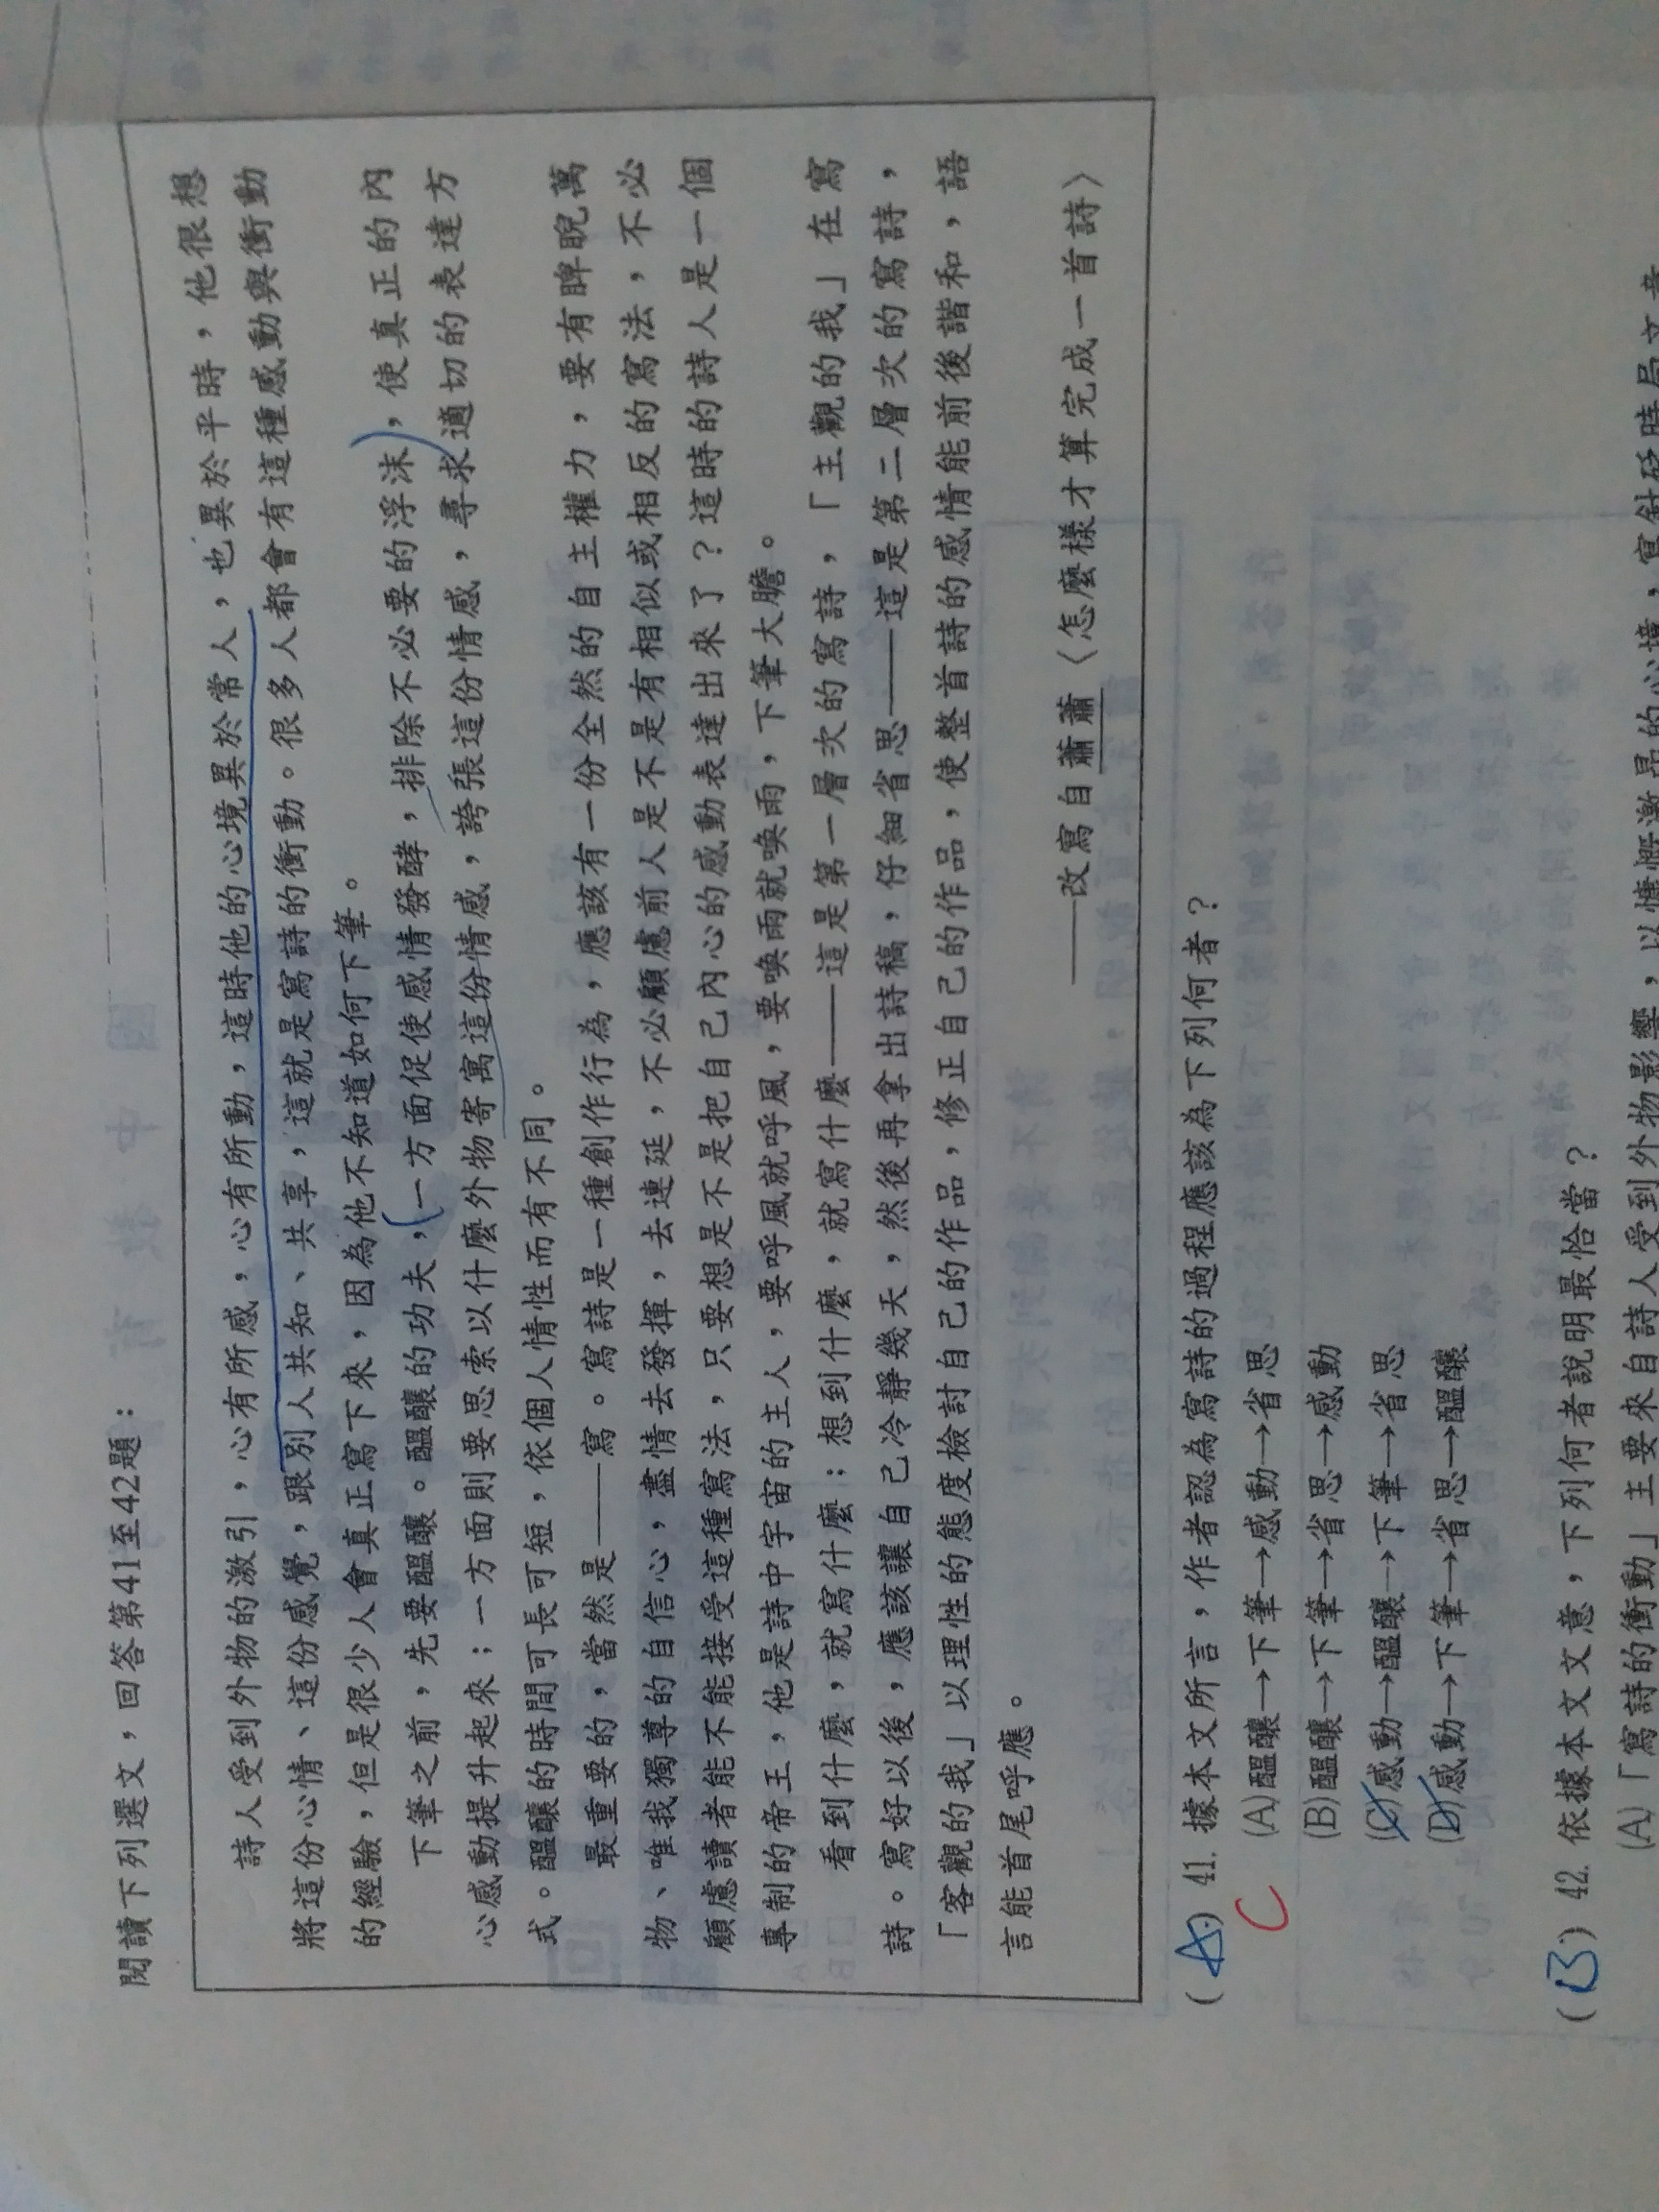 閱讀下列選文，回答第41至42題：
詩人受到外物的激引，心有所感，心有所動，這時他的心境異於常人，也異於平時，他很想
將這份心情、這份感覺，跟別人共知、共享，這就是寫詩的衝動。很多人都會有這種感動與衝動
的經驗，但是很少人會真正寫下來，因為他不知道如何下筆。
下筆之前，先要醞釀。醞釀的功夫，一方面促使感情發酵，排除不必要的浮沫，使真正的內
心感動提升起來；一方面則要思索以什麼外物寄寓這份情感，誇張這份情感，尋求適切的表達方
式。醞釀的時間可長可短，依個人情性而有不同。
最重要的，當然是——寫。寫詩是一種創作行為，應該有一份全然的自主權力，要有睥睨萬
物、唯我獨尊的自信心，盡情去發揮，去連延，不必顧慮前人是不是有相似或相反的寫法，不必
顧慮讀者能不能接受這種寫法，只要想是不是把自己內心的感動表達出來了？這時的詩人是一個
專制的帝王，他是詩中宇宙的主人，要呼風就呼風，要喚雨就喚雨，下筆大膽。
看到什麼，就寫什麼；想到什麼，就寫什麼——這是第一層次的寫詩，「主觀的我」在寫
詩。寫好以後，應該讓自己冷靜幾天，然後再拿出詩稿，仔細省思——這是第二層次的寫詩，
「客觀的我」以理性的態度檢討自己的作品，修正自己的作品，使整首詩的感情能前後諧和，語
言能首尾呼應。
——改寫自蕭蕭〈怎麼樣才算完成一首詩〉
(A) 41. 據本文所言，作者認為寫詩的過程應該為下列何者？
C (A)醞釀→下筆→感動→省思
(B)醞釀→下筆→省思→感動
(C)感動→醞釀→下筆→省思
(D)感動→下筆→省思→醞釀
(B) 42. 依據本文文意，下列何者說明最恰當？
(A)「寫詩的衝動」主要來自詩人受到外物影響，以慷慨激昂的心境，寫針砭時局文章